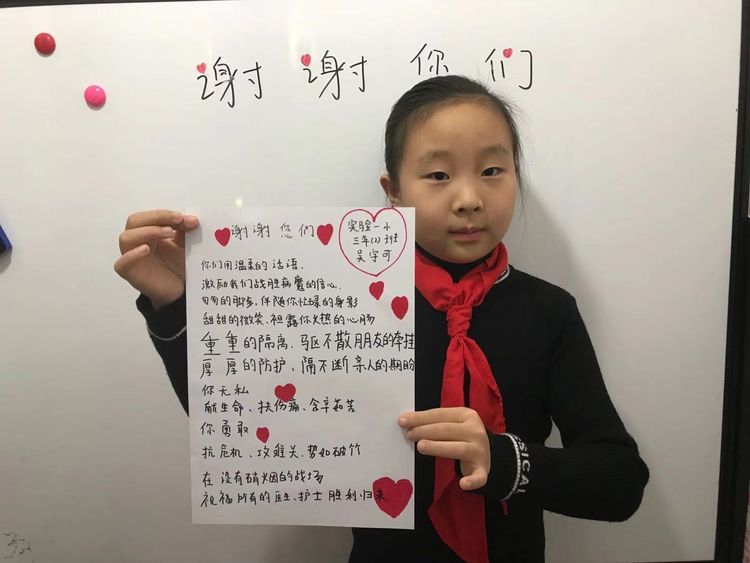 谢谢你们
谢谢您们
实验一小
三年(2)班
吴宇可
你们用温柔的话语.
激励我们战胜病魔的信心.
匆匆的脚步,伴随你忙碌的身影
甜甜的微笑、袒露你火热的心肠
重重的隔离、驱不散朋友的牵挂
厚厚的防护、隔不断亲人的期盼
你无私
献生命、扶伤痛、含辛茹苦
你勇敢
抗危机、攻难关、势如破竹
在没有硝烟的战场
祝福所有的医生、护士胜利归来.
SICAL